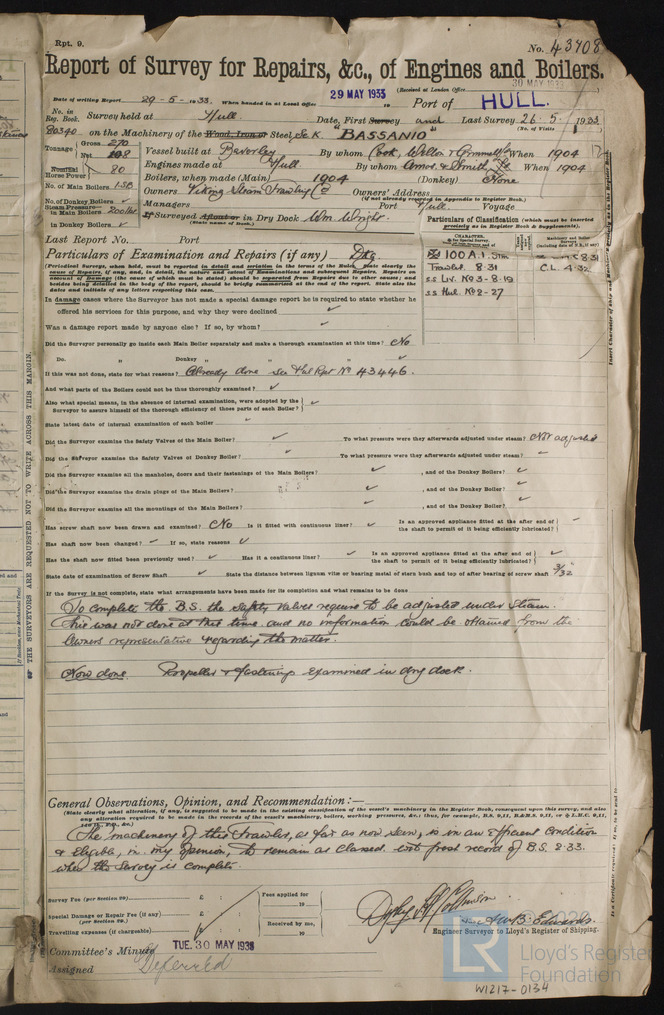 Rpt. 9.
No. 43708
Report of Survey for Repairs, &c., of Engines and Boilers.
(Received at London Office 30 MAY 1933
Date of writing Report 29-5-1933. When handed in at Local Office 29 MAY 1933 19 Port of HULL.
No. in Reg. Book. Survey held at Hull. Date, First Survey and Last Survey 26.5.1933
(No. of Visits
80340 on the Machinery of the Wood, Iron or Steel, Sc K. "BASSANIO"
Tonnage Gross 270 Net 108
Vessel built at Beverley By whom Cook, Welton & Gemmell Ld When 1904
Nominal Horse Power 80
Engines made at Hull. By whom Amos & Smith Ld When 1904
No. of Main Boilers 1SB
Boilers, when made (Main) 1904 (Donkey) None
No. of Donkey Boilers ✓
Owners Viking Steam Trawling Co Owners' Address
(if not already recorded in Appendix to Register Book.)
Steam Pressure in Main Boilers 200 lbs
Managers Port Hull. Voyage
in Donkey Boilers ✓
If Surveyed Afloat or in Dry Dock Wm Wright.
(State name of Dock.)
Particulars of Classification (which must be inserted precisely as in Register Book & Supplements).
Last Report No. Port
CHARACTER.
Machinery and Boiler Surveys
100 A.1. Stm
Trawler 8.31
SS Liv. No 3-8-19
SS Hul. No 2-27
8.31
CL 4.32
Particulars of Examination and Repairs (if any) Dkg
(Periodical Surveys, when held, must be reported in detail and seriatim in the terms of the Rules. State clearly the cause of Repairs, if any, and, in detail, the nature and extent of Examinations and subsequent Repairs. Repairs on account of Damage (the cause of which must be stated) should be separated from Repairs due to other causes; and besides being detailed in the body of the report, should be briefly summarised at the end of the report. State also the dates and initials of any letters respecting this case.)
In damage cases where the Surveyor has not made a special damage report he is required to state whether he
offered his services for this purpose, and why they were declined ✓
Was a damage report made by anyone else? If so, by whom? ✓
Did the Surveyor personally go inside each Main Boiler separately and make a thorough examination at this time? No
Do. " Donkey " " " ✓
If this was not done, state for what reasons? Already done see Hul Rpt No 43446.
And what parts of the Boilers could not be thoroughly examined? ✓
Also what special means, in the absence of internal examination, were adopted by the
Surveyor to assure himself of the thorough efficiency of those parts of each Boiler? ✓
State latest date of internal examination of each boiler ✓
Did the Surveyor examine the Safety Valves of the Main Boiler? ✓ To what pressure were they afterwards adjusted under steam? Not adjusted
Did the Surveyor examine the Safety Valves of Donkey Boiler? ✓ To what pressure were they afterwards adjusted under steam? ✓
Did the Surveyor examine all the manholes, doors and their fastenings of the Main Boilers? ✓, and of the Donkey Boilers? ✓
Did the Surveyor examine the drain plugs of the Main Boilers? ✓, and of the Donkey Boilers? ✓
Did the Surveyor examine all the mountings of the Main Boilers? ✓, and of the Donkey Boilers? ✓
Has screw shaft now been drawn and examined? No Is it fitted with continuous liner? ✓ Is an approved appliance fitted at the after end of the shaft to permit of it being efficiently lubricated? ✓
Has shaft now been changed? ✓ If so, state reasons ✓
Has the shaft now fitted been previously used? ✓ Has it a continuous liner? ✓ Is an approved appliance fitted at the after end of the shaft to permit of it being efficiently lubricated? ✓
State date of examination of Screw Shaft ✓ State the distance between lignum vitæ or bearing metal of stern bush and top of after bearing of screw shaft 3/32"
If the Survey is not complete, state what arrangements have been made for its completion and what remains to be done
To complete the B.S. the safety valves require to be adjusted under steam.
This was not done at this time and no information could be obtained from the
Owners representative regarding the matter.
Now done. Propeller & fastenings examined in dry dock.
General Observations, Opinion, and Recommendation:—
(State clearly what alteration, if any, is suggested to be made in the existing classification of the vessel's machinery in the Register Book, consequent upon this survey, and also any alteration required to be made in the records of the vessel's machinery, boilers, working pressures, &c.
The machinery of this trawler, as far as now seen, is in an efficient condition
& Eligible, in my opinion, to remain as classed with fresh record of B.S. 2.33.
when the survey is complete.
Survey Fee (per Section 29) £ : : Fees applied for 19
Special Damage or Repair Fee (if any) (per Section 29.) £ : :
Travelling expenses (if chargeable) £ : : Received by me, 19
Engineer Surveyor to Lloyd's Register of Shipping.
Committee's Minute TUE. 30 MAY 1933
Assigned Deferred
LR Lloyd's Register Foundation
W1217-0134
OF THE SURVEYORS ARE REQUESTED NOT TO WRITE ACROSS THIS MARGIN.